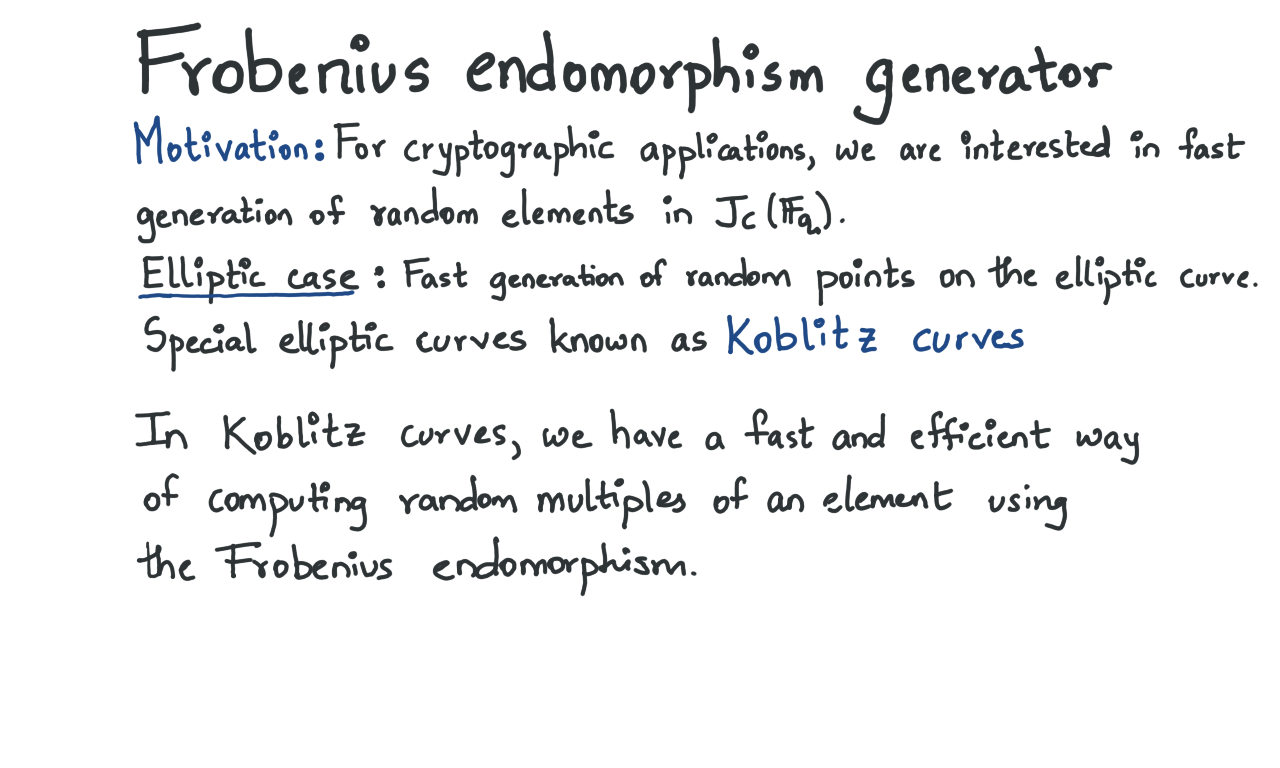 Frobenius endomorphism generator
Motivation: For cryptographic applications, we are interested in fast
generation of random elements in J_C(𝔽_q).
Elliptic case : Fast generation of random points on the elliptic curve.
Special elliptic curves known as Koblitz curves
In Koblitz curves, we have a fast and efficient way
of computing random multiples of an element using
the Frobenius endomorphism.